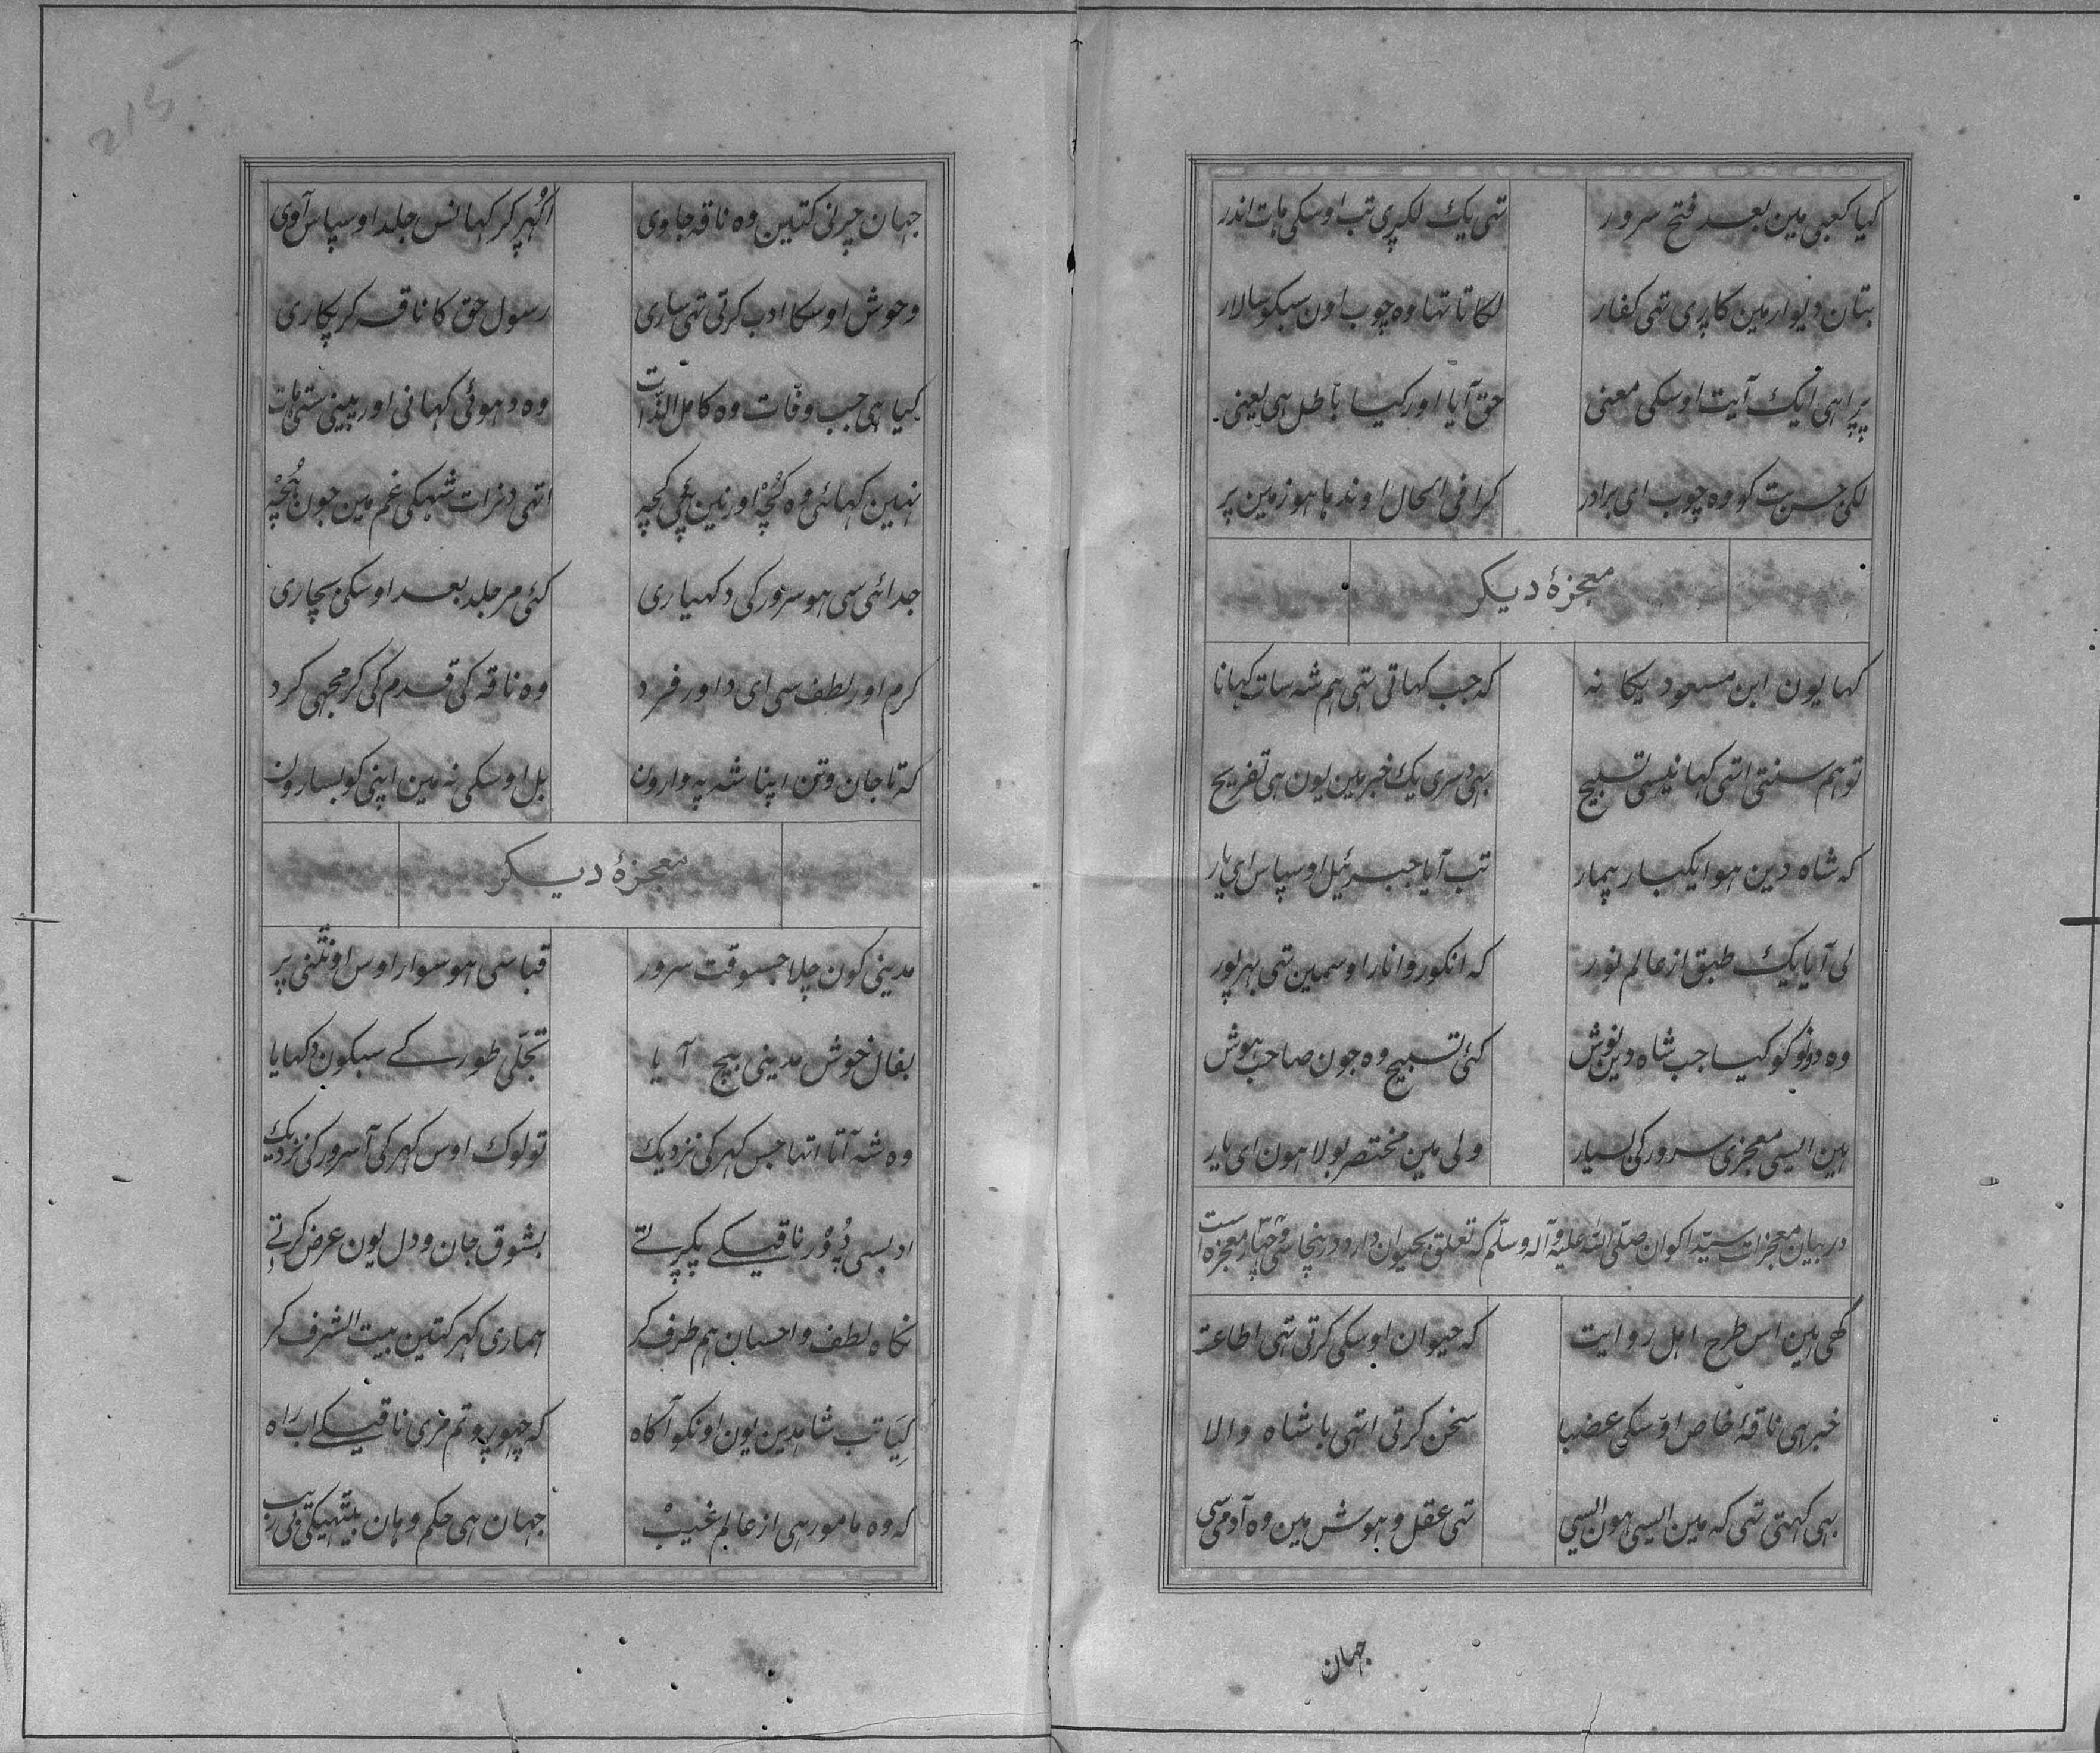 کیا کعبی مین بعد فتح سرور تهی یک لکڑی تب اوسکی هات اندر
بتان دیوار مین کاڑی تهی کفار لکاتا تها وه چوب اون سبکو سالار
پڑا هی ایک آیت اوسکی معنی حق آیا اور کیا باطل هی یعنی
لکی جس بت کو وه چوب ای برادر کرا فی الحال اوندها هو زمین پر
معجزهٔ دیکر
کها یون ابن مسعود یکانه که جب کهاتی تهی هم شه سات کهانا
تو هم سنتی اتهی کهانیسی تسبیح بهی دسری یک خبر مین یون هی تفریح
که شاه دین هوا یکبار بیمار تب آیا جبرئیل اوسپاس ای یار
لی آیا یک طبق از عالم نور که انکور و انار اوسمین تهی بهرپور
وه دونو کو کیا جب شاه دین نوش کئی تسبیح وه جون صاحب هوش
هین ایسی معجزی سرور کی بسیار ولی مین مختصر بولا هون ای یار
در بیان معجزات سیّد اکوان صلّی الله علیه و آله و سلّم که تعلق بحیوان دارد در پنجا سی و چهار معجزه است
کهی هین اس طرح اهل روایت که حیوان اوسکی کرتی تهی اطاعت
خبر هی ناقهٔ خاص اوسکی عضبا سخن کرتی اتهی با شاه والا
بهی کهتی تهی که مین ایسی هون ایسی تهی عقل و هوش مین وه آدمی سی
جهان
215
جهان چرنی کتین وه ناقه جاوی اکهڑ کر کهانس جلد اوسپاس آوی
وحوش اوسکا ادب کرتی تهی ساری رسول حق کا ناقه کر پکاری
کیا هی جب وفات وه کامل الذّات وه دهوئی کهانی اور پینی ستی هات
نهین کهائی وه کُچه اور نین پئی کچه اتهی دنرات شهکی غم مین جون بُچه
جدائی سی هو سرور کی دکهیاری کئی مر جلد بعد اوسکی بچاری
کرم اور لطف سی ای داور فرد وه ناقه کی قدم کی کر مجهی کرد
که تا جان و تن اپنا شه په وارون بل اوسکی نه مین اپنی کو بسارون
معجزهٔ دیکر
مدینی کون چلا جسوقت سرور قبا سی هو سوار اوس اونٹنی پر
بفال خوش مدینی بیچ آیا تجلّی طور کے سبکون دکهایا
وه شه آتا اتها جس کهر کی نزدیک تو لوک اوس کهر کی آ سرور کی نزدیک
ادبسی ڈور ناقیکے پکڑتے بشوق جان و دل یون عرض کرتے
نکاه لطف و احسان هم طرف کر هماری کهر کتین بیت الشرف کر
کیا تب شاهدین یون اونکو آکاه که چهوڑو تم مری ناقیکے اب راه
که وه مامور هی از عالم غیب جهان هی حکم وهان بیٹهیکی بی ریب